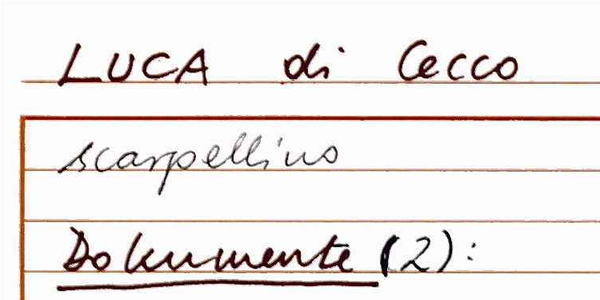 LUCA di Cecco
scarpellino
Dokumente (2):